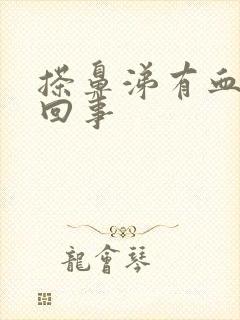 搽鼻涕有血
回事
龍會琴